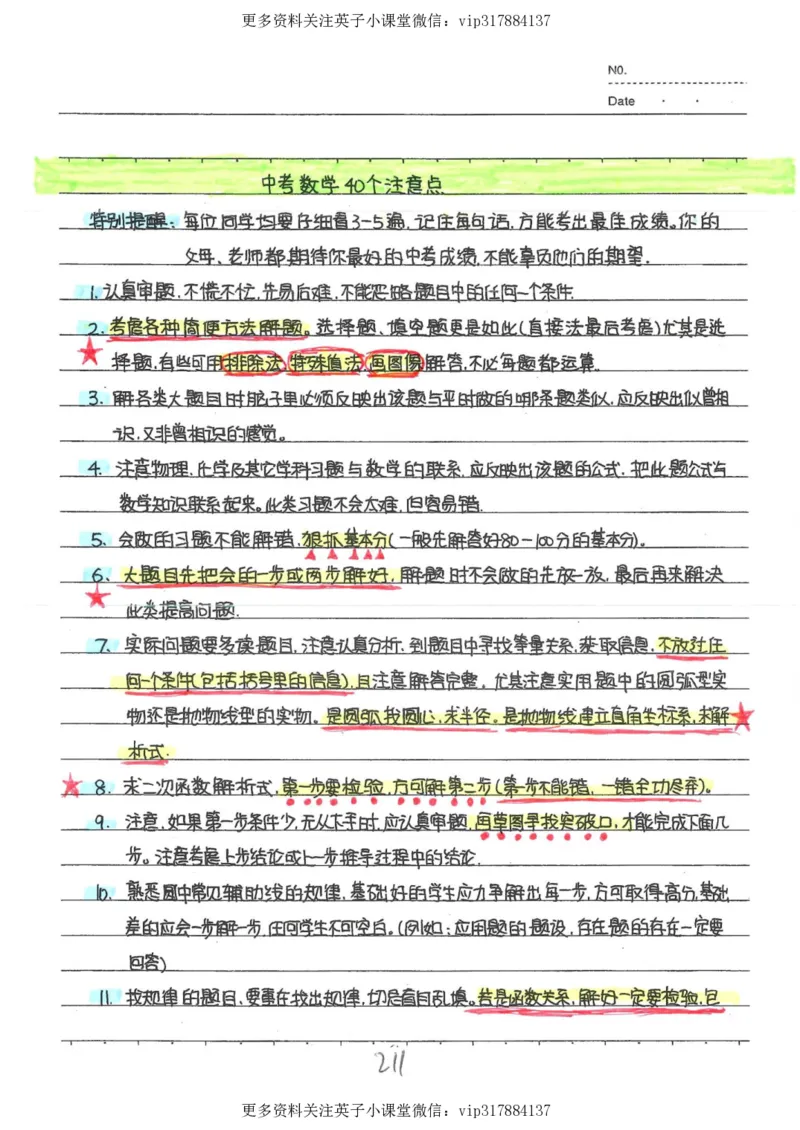 更多资料关注英子小课堂微信：vip317884137
NO.
Date
中考数学40个注意点
特别提醒：每位同学均要仔细看3-5遍，记住每句话，方能考出最佳成绩。你的
父母、老师都期待你最好的中考成绩，不能辜负他们的期望．
1.认真审题，不慌不忙，先易后难，不能忽略题目中的任何一个条件．
2、考虑各种简便方法解题。选择题、填空题更是如此（直接法最后考虑）尤其是选
择题，有些可用排除法、特殊值法、画图像解答，不必每题都运算．
3、解各类大题目时脑子里必须反映出该题与平时做的哪条题类似，应反映出似曾相
识，又非曾相识的感觉。
4、注意物理、化学及其它学科习题与数学的联系，应反映出该题的公式，把此题公式与
数学知识联系起来。此类习题不会太难，但容易错．
5、会做的习题不能解错，狠抓基本分（一般先解答好80-100分的基本分）。
6、大题目先把会的一步或两步解好，解题时不会做的先放一放，最后再来解决
此类提高问题．
7、实际问题要多读题目，注意认真分析，到题目中寻找等量关系，获取信息，不放过任
何一个条件（包括括号里的信息），且注意解答完整，尤其注意实用题中的圆弧型实
物还是抛物线型的实物。是圆弧找圆心，求半径。是抛物线建立直角坐标系，求解
析式．
8、求二次函数解析式，第一步要检验，方可解第二步（第一步不能错，一错全功尽弃）。
9、注意，如果第一步条件少，无从下手时，应认真审题，画草图寻找突破口，才能完成下面几
步。注意考虑上步结论或上一步推导过程中的结论．
10、熟悉圆中常见辅助线的规律，基础好的学生应力争解出每一步，方可取得高分，基础
差的应会一步解一步，任何学生不可空白。（例如：应用题的题设，存在题的存在一定要
回答）
11、找规律的题目，要重在找出规律，切忌盲目乱填。若是函数关系，解好一定要检验，包
211
更多资料关注英子小课堂微信：vip317884137